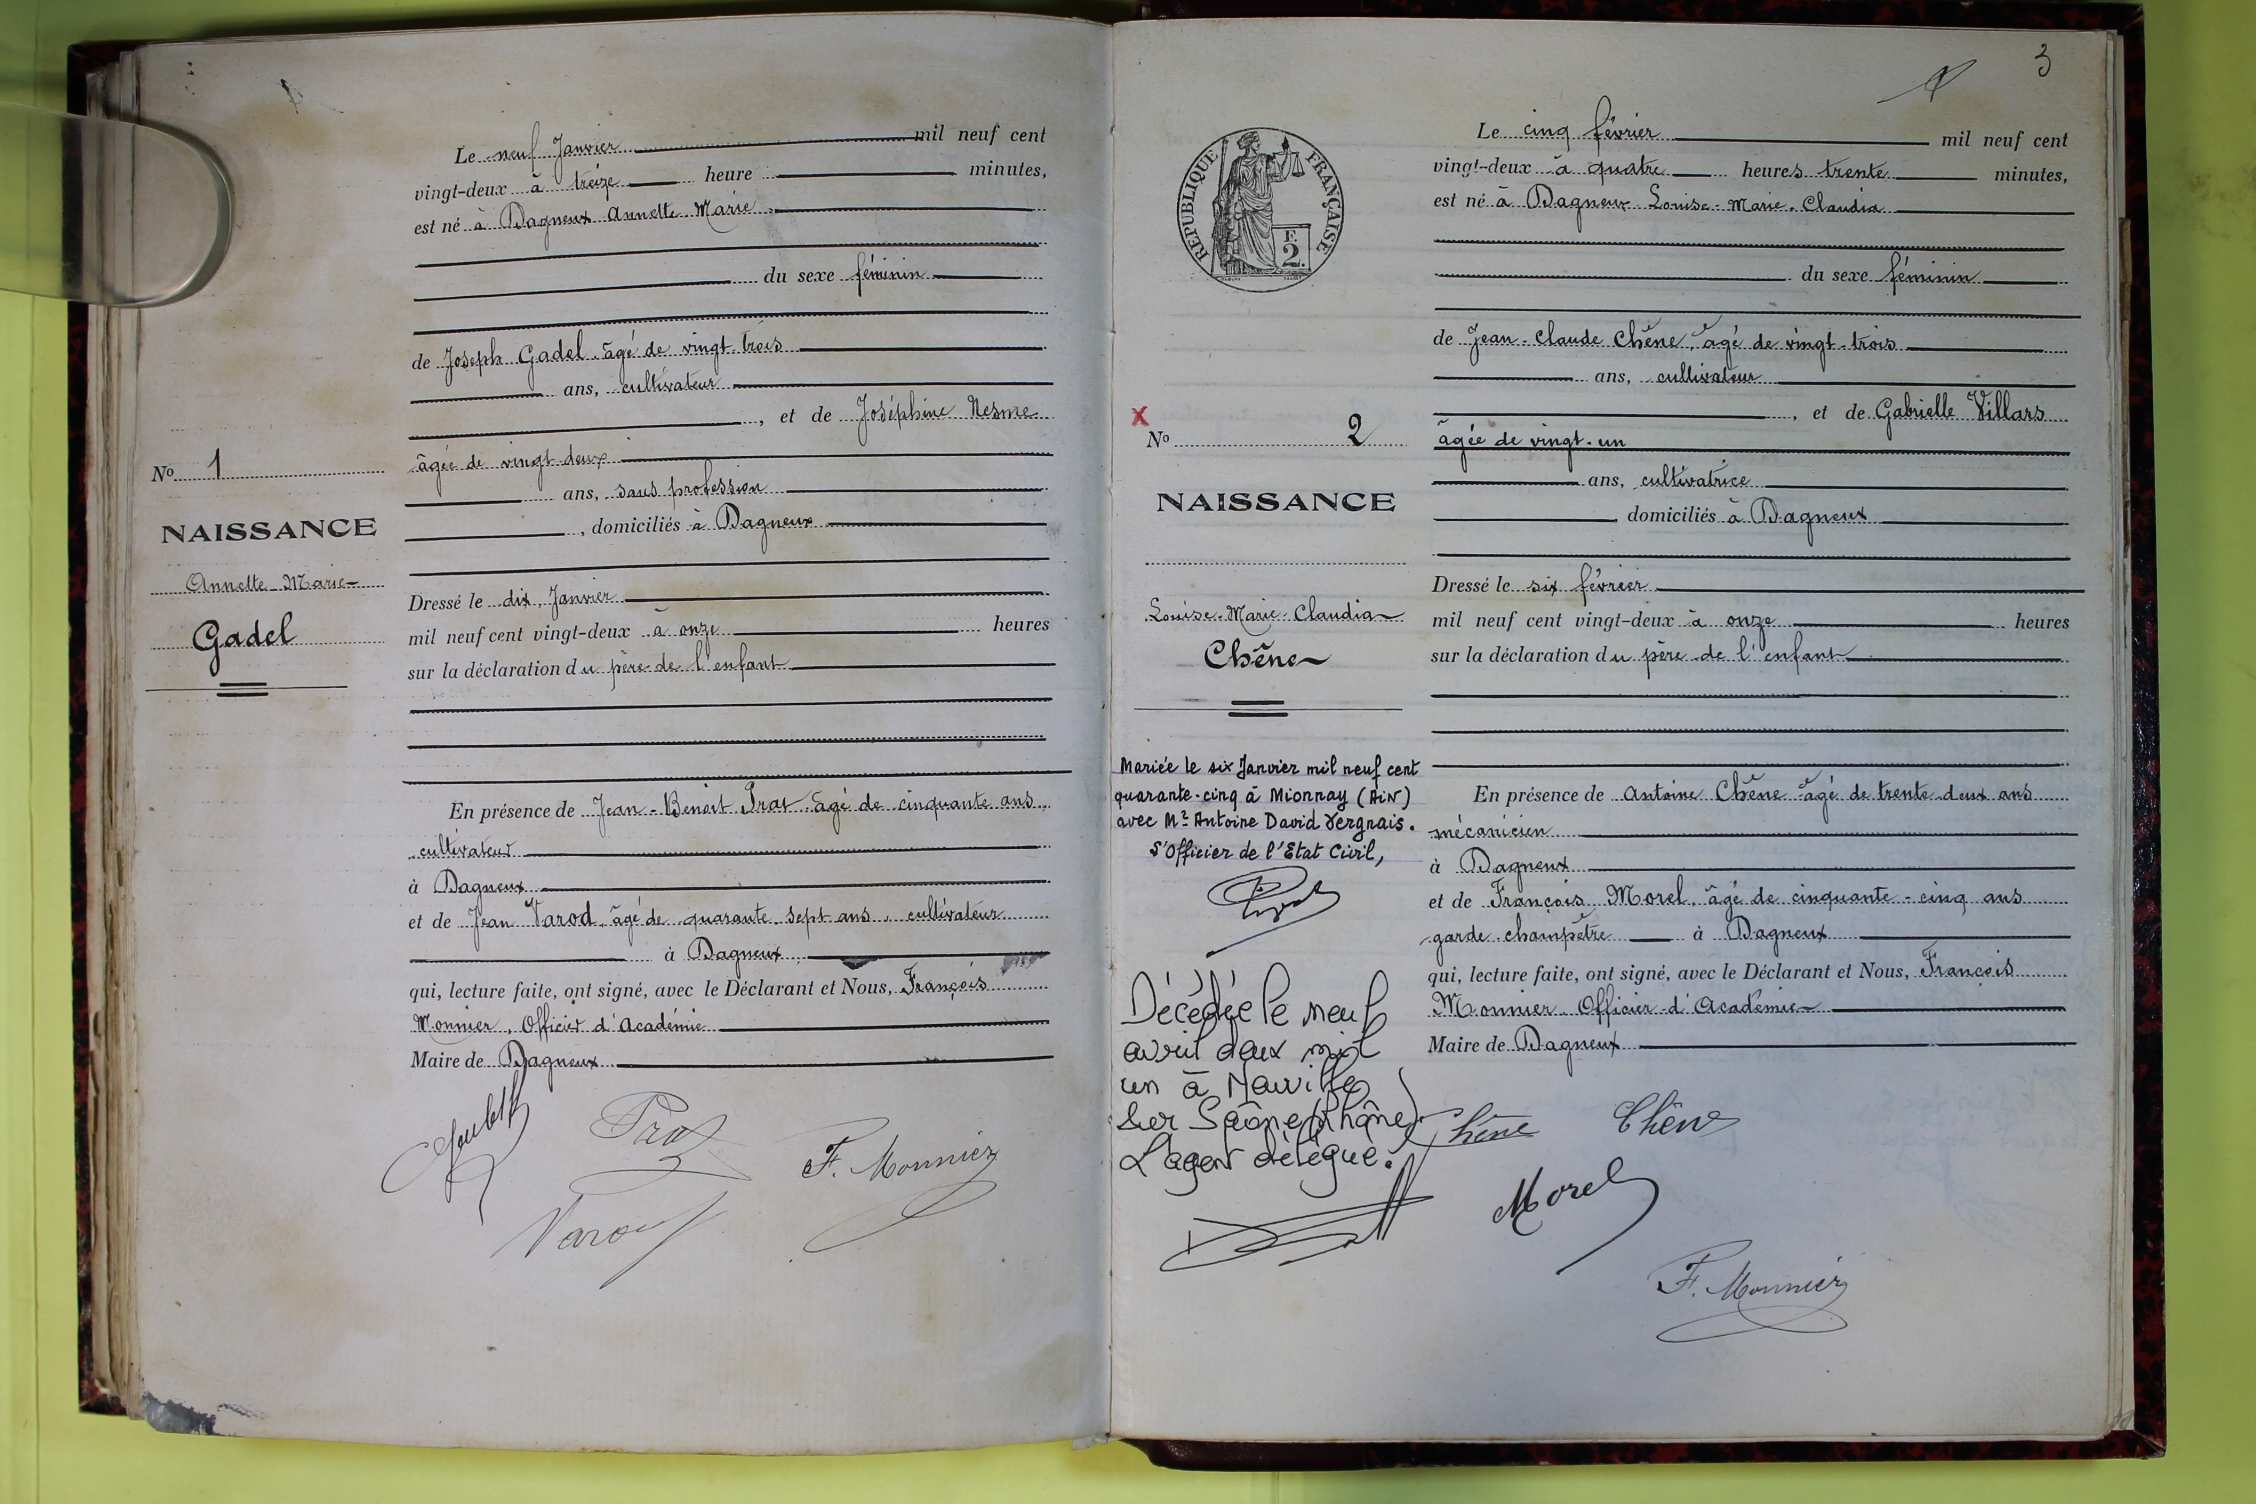 Le neuf Janvier mil neuf cent
vingt-deux à treize heure minutes,
est né à Dagneux Annette Marie
du sexe féminin
de Joseph Gadel âgé de vingt-trois
ans, cultivateur
, et de Joséphine Nesme
âgée de vingt-deux
ans, sans profession
, domiciliés à Dagneux
Dressé le dix Janvier
mil neuf cent vingt-deux à onze heures
sur la déclaration du père de l'enfant
En présence de Jean-Benoit Prat âgé de cinquante ans,
cultivateur
à Dagneux
et de Jean Varod, âgé de quarante-sept ans, cultivateur
à Dagneux,
qui, lecture faite, ont signé, avec le Déclarant et Nous, François
Monnier, Officier d'Académie
Maire de Dagneux
No 1
NAISSANCE
Annette-Marie
Gadel
F. Monnier
Varod
3
RÉPUBLIQUE FRANÇAISE
F.
2.
Le cinq février mil neuf cent
vingt-deux à quatre heures trente minutes,
est né à Dagneux Louise-Marie-Claudia
du sexe féminin
de Jean-Claude Chêne, âgé de vingt-trois
ans, cultivateur
, et de Gabrielle Villars
âgée de vingt-un
ans, cultivatrice
domiciliés à Dagneux
Dressé le six février
mil neuf cent vingt-deux à onze heures
sur la déclaration du père de l'enfant
En présence de Antoine Chêne âgé de trente-deux ans
mécanicien
à Dagneux
et de François Morel, âgé de cinquante-cinq ans
garde-champêtre à Dagneux
qui, lecture faite, ont signé, avec le Déclarant et Nous, François
Monnier Officier d'Académie
Maire de Dagneux
X
No 2
NAISSANCE
Louise-Marie-Claudia
Chêne
Mariée le six Janvier mil neuf cent
quarante-cinq à Mionnay (Ain)
avec Mr Antoine David Vergnais.
L'Officier de l'Etat Civil,
Décédée le neuf
avril deux mil
un à Neuville
sur Saône (Rhône)
L'agent délégué.
Chêne Chêne
Morel
F. Monnier